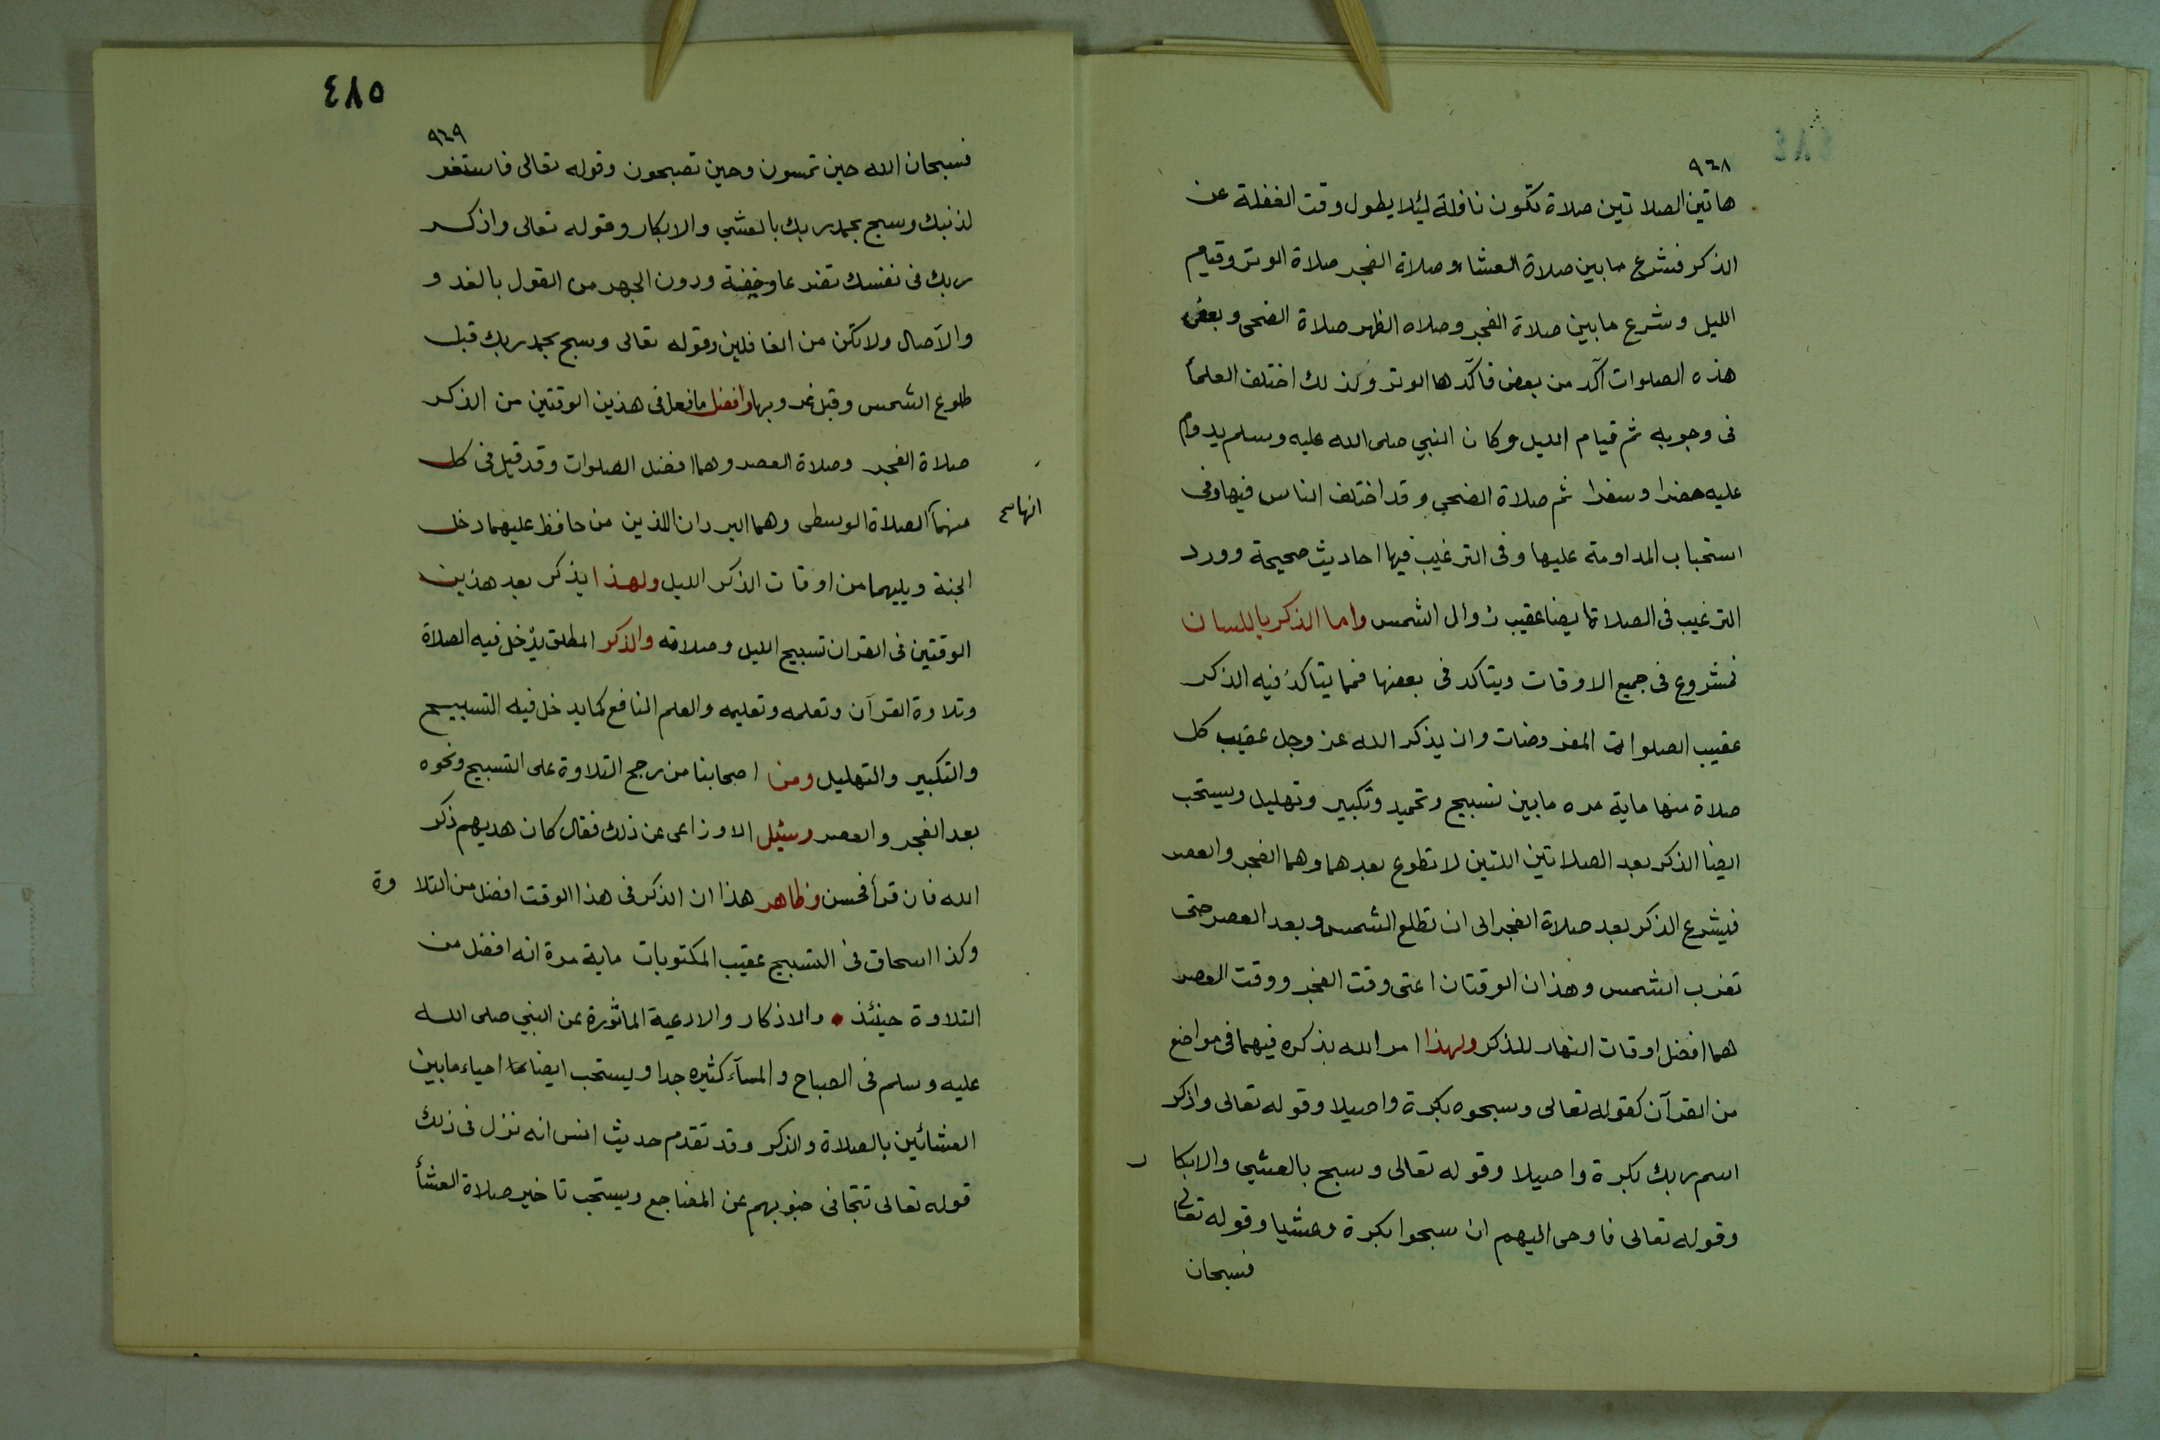 ٩٦٨
هاتين الصلاتين صلاة تكون نافلة لئلا يطول وقت الغفلة عن
الذكر فشرع ما بين صلاة العشاء وصلاة الفجر صلاة الوتر وقيام
الليل وشرع ما بين صلاة الفجر وصلاه الظهر صلاة الضحى وبعض
هذه الصلوات آكد من بعض فآكدها الوتر ولذلك اختلف العلمأ
فى وجوبه ثم قيام الليل وكان النبي صلى الله عليه وسلم يداوم
عليه حضرا وسفرا ثم صلاة الضحي وقد اختلف الناس فيها وفى
استحباب المداومة عليها وفى الترغيب فيها احاديث صحيحة وورد
الترغيب فى الصلاة ايضا عقيب زوال الشمس واما الذكر باللسان
فمشروع فى جميع الاوقات ويتاكد فى بعضها فمما يتاكد فيه الذكر
عقيب الصلوات المفروضات وان يذكر الله عز وجل عقيب كل
صلاة منها ماية مره ما بين تسبيح وتحميد وتكبير وتهليل ويستحب
ايضا الذكر بعد الصلاتين اللتين لا تطوع بعدهما وهما الفجر والعصر
فيشرع الذكر بعد صلاة الفجر الى ان تطلع الشمس وبعد العصر حتى
تغرب الشمس وهذان الوقتان اعنى وقت الفجر ووقت العصر
هما افضل اوقات النهار للذكر ولهذا امر الله بذكره فيهما فى مواضع
من القرآن كقوله تعالى وسبحوه بكرة واصيلا وقوله تعالى واذكر
اسم ربك بكرة واصيلا وقوله تعالى وسبح بالعشي والابكار
وقوله تعالى فاوحى اليهم ان سبحوا بكرة وعشيا وقوله تعالى
فسبحان
٤٨٥
٩٦٩
فسبحان الله حين تمسون وحين تصبحون وقوله تعالى فاستغفر
لذنبك وسبح بحمد ربك بالعشي والابكار وقوله تعالى واذكر
ربك فى نفسك تضرعا وخيفة ودون الجهر من القول بالغدو
والآصال ولا تكن من الغافلين وقوله تعالى وسبح بحمد ربك قبل
طلوع الشمس وقبل غروبها وافضل ما فعل فى هذين الوقتين من الذكر
صلاة الفجر وصلاة العصر وهما افضل الصلوات وقد قيل فى كل
منهما الصلاة الوسطى وهما البردان اللذين من حافظ عليهما دخل
انها صح
الجنة ويليهما من اوقات الذكر الليل ولهذا يذكر بعد هذين
الوقتين فى القران تسبيح الليل وصلاته والذكر المطلق يدخل فيه الصلاة
وتلاوة القرآن وتعلمه وتعليمه والعلم النافع كما يدخل فيه التسبيح
والتكبير والتهليل ومن اصحابنا من رجح التلاوة على التسبيح ونحوه
بعد الفجر والعصر وسئل الاوزاعى عن ذلك فقال كان هديهم ذكر
الله فان قرأ فحسن وظاهر هذا ان الذكر فى هذا الوقت افضل من التلاوة
وكذا اسحاق فى التسبيح عقيب المكتوبات ماية مرة انه افضل من
التلاوة حينئذ • والاذكار والادعية الماثورة عن النبي صلى الله
عليه وسلم فى الصباح والمسآء كثيره جدا ويستحب ايضا احياء ما بين
العشائين بالصلاة والذكر وقد تقدم حديث انس انه نزل فى ذلك
قوله تعالى تتجافى جنوبهم عن المضاجع ويستحب تاخير صلاة العشأ